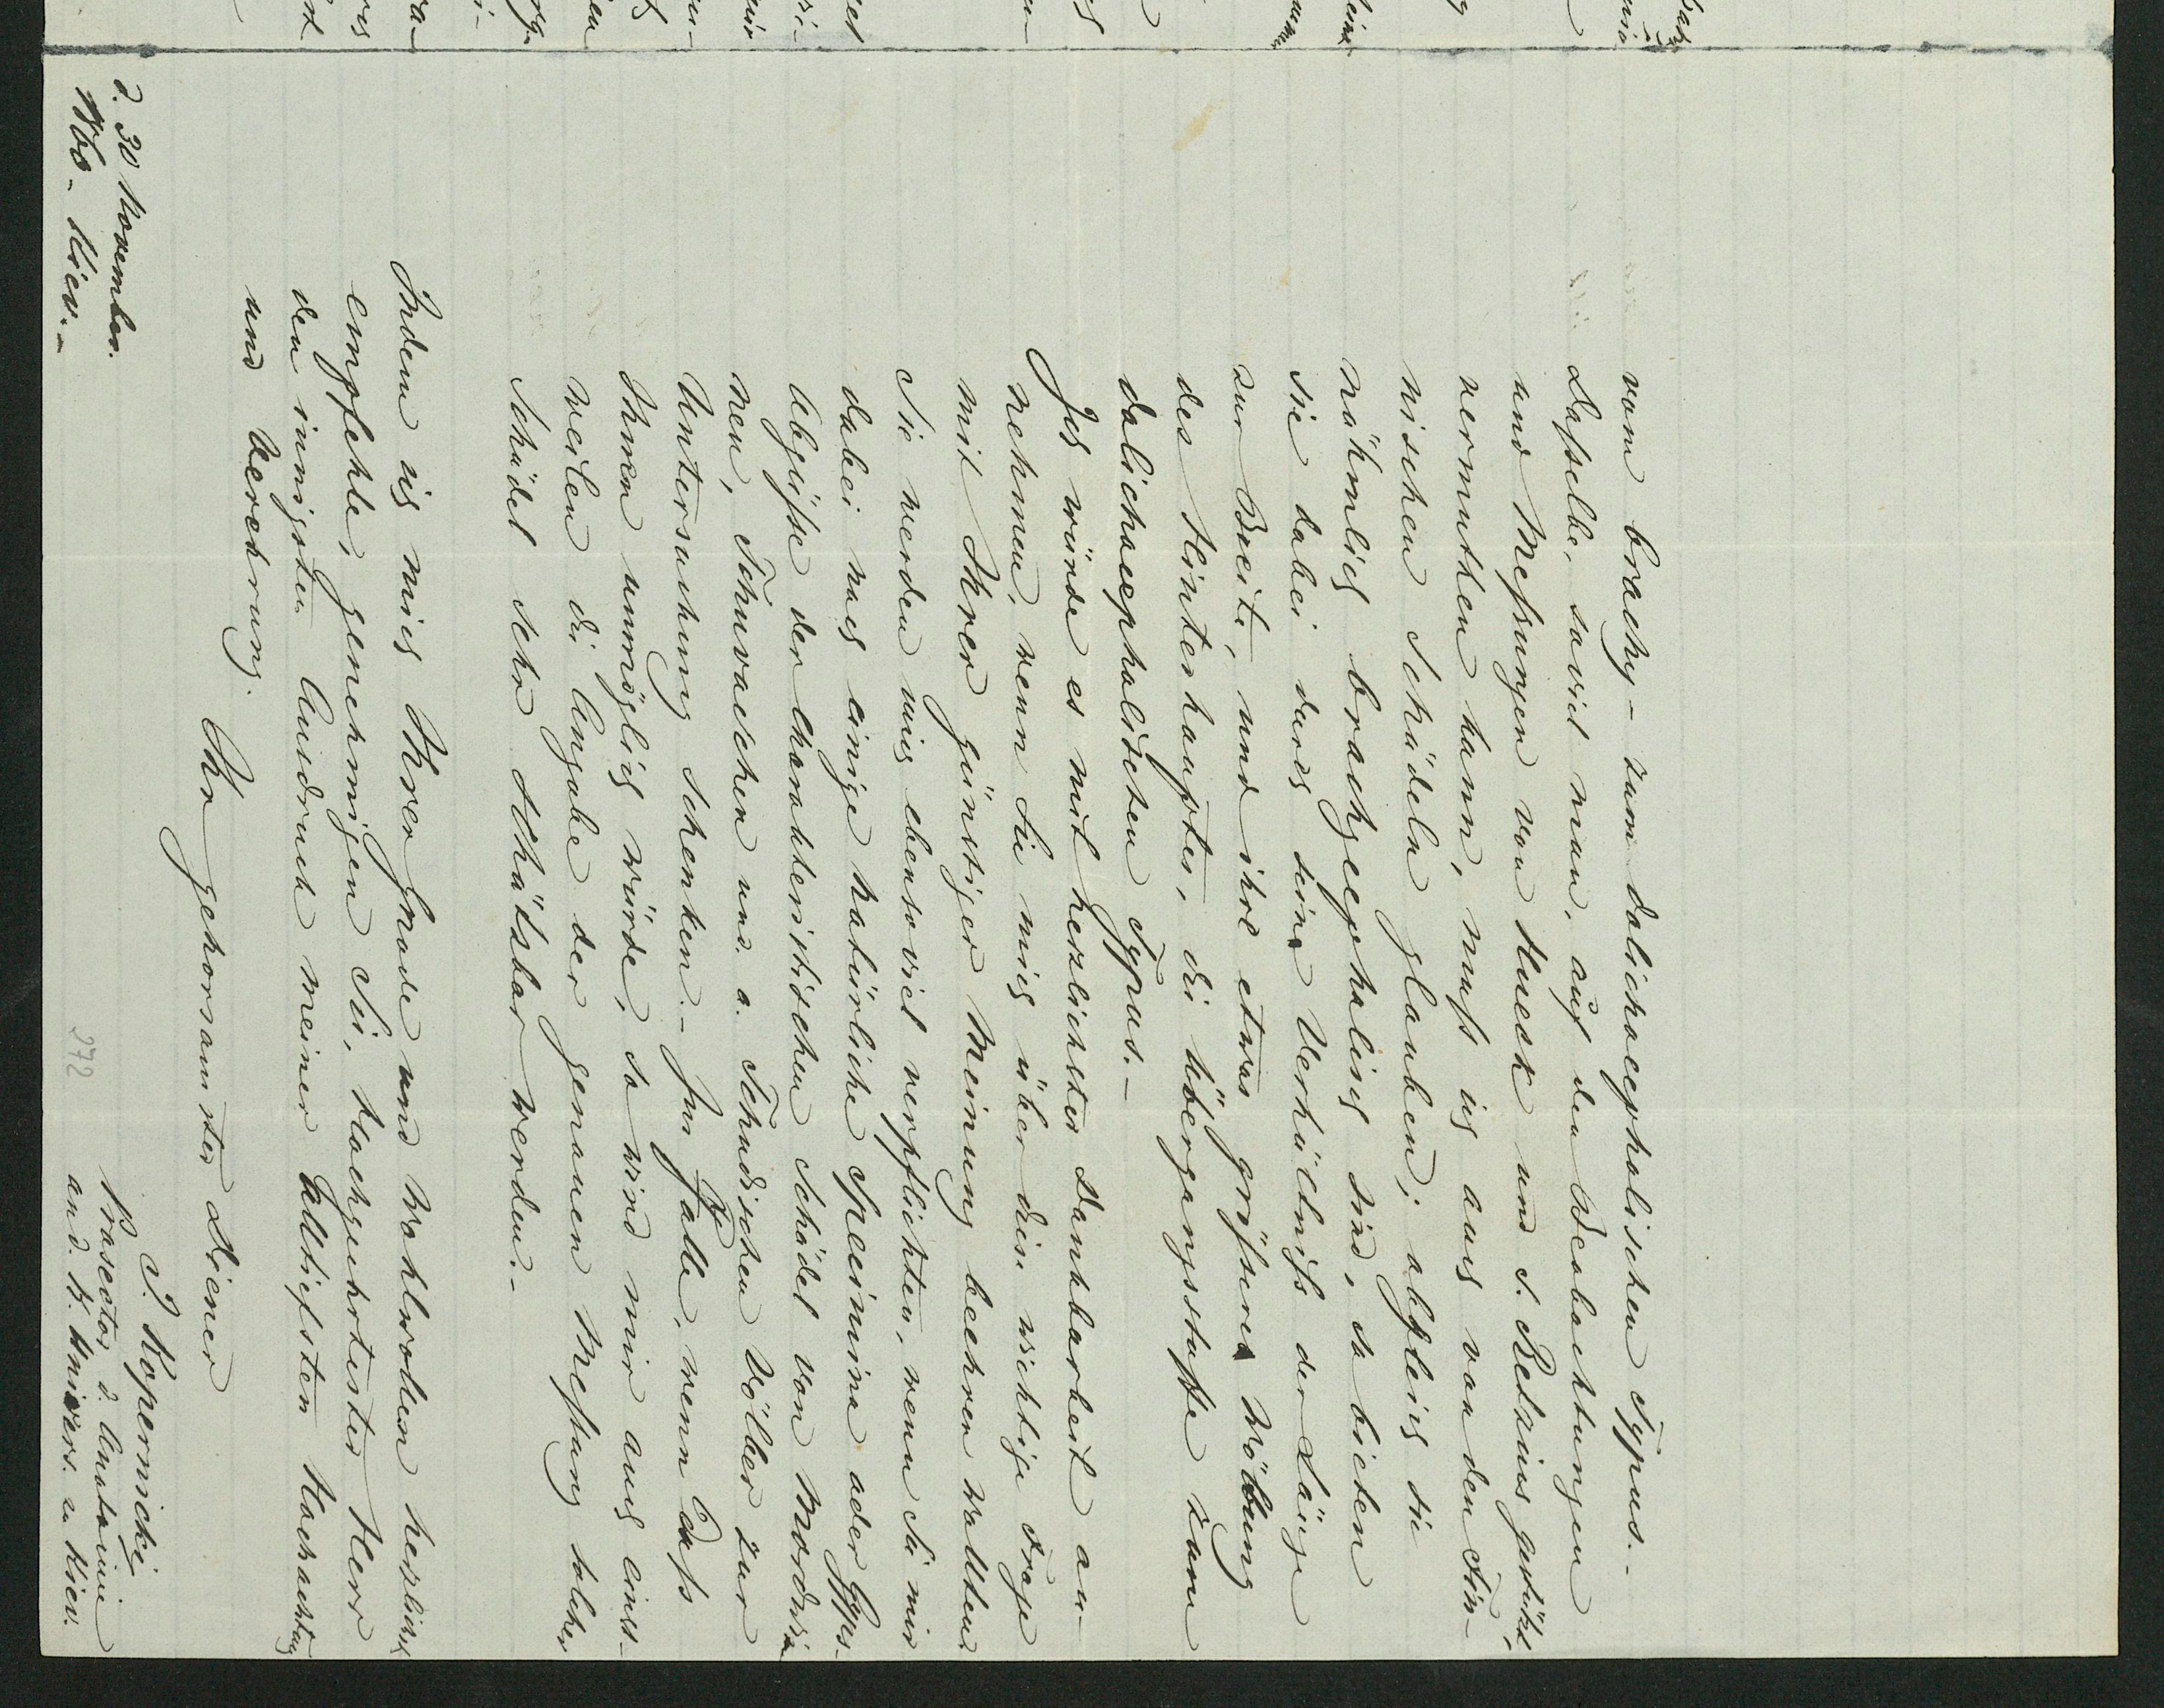 vom brachy- zum dolichocephalischen Typus.-
Dasselbe, soviel man, auf den Beobachtungen
und Meßungen von Hueck und S. Retzius gestützt,
vermuthen kann, muß ich auch von den Fin-
nischen Schädeln glauben; obgleich sie
nähmlich brachycephalisch sind, so bieten
sie dabei durch seine Verhältniß der Länge
zur Breite, und ihre etwas größere Wölbung
des Hinterhauptes, die übergangsstuffe zum
dolichocephalischen Typus.-
Ich würde es mit herzlichster Dankbarkeit an-
nehmen, wenn Sie mich über diese wichtige Frage
mit Ihrer günstiger Meinung beehren wollten.
Sie werden mich ebensoviel verpflichten, wenn Sie mir
dabei noch einige natürliche Specimina oder Gyps-
abgüsse der charakteristischen Schädel von Mordwi-
nen, Tchuvaschen und a. Tchudischen Völker zur
Untersuchung schenken.- Im Falle, wenn daß
Ihnen unmöglich würde, so wird mir auch einst-
weilen die Angabe der genauen Meßung solcher
Schädel sehr schätzbar werden.-
Indem ich mich Ihrer Gnade und Wohlwollen herzlich
empfehle, genehmigen Sie, Hochgeehrtester Herr
den innigsten Ausdruck meiner alltiefsten Hochachtung
und Verehrung.
Ihr gehorsamster Diener
I. Kopernicki
Prosector d. Anatomie
and. K. Univers. zu Kiev.
d. 30 November.
Kiev.-
272